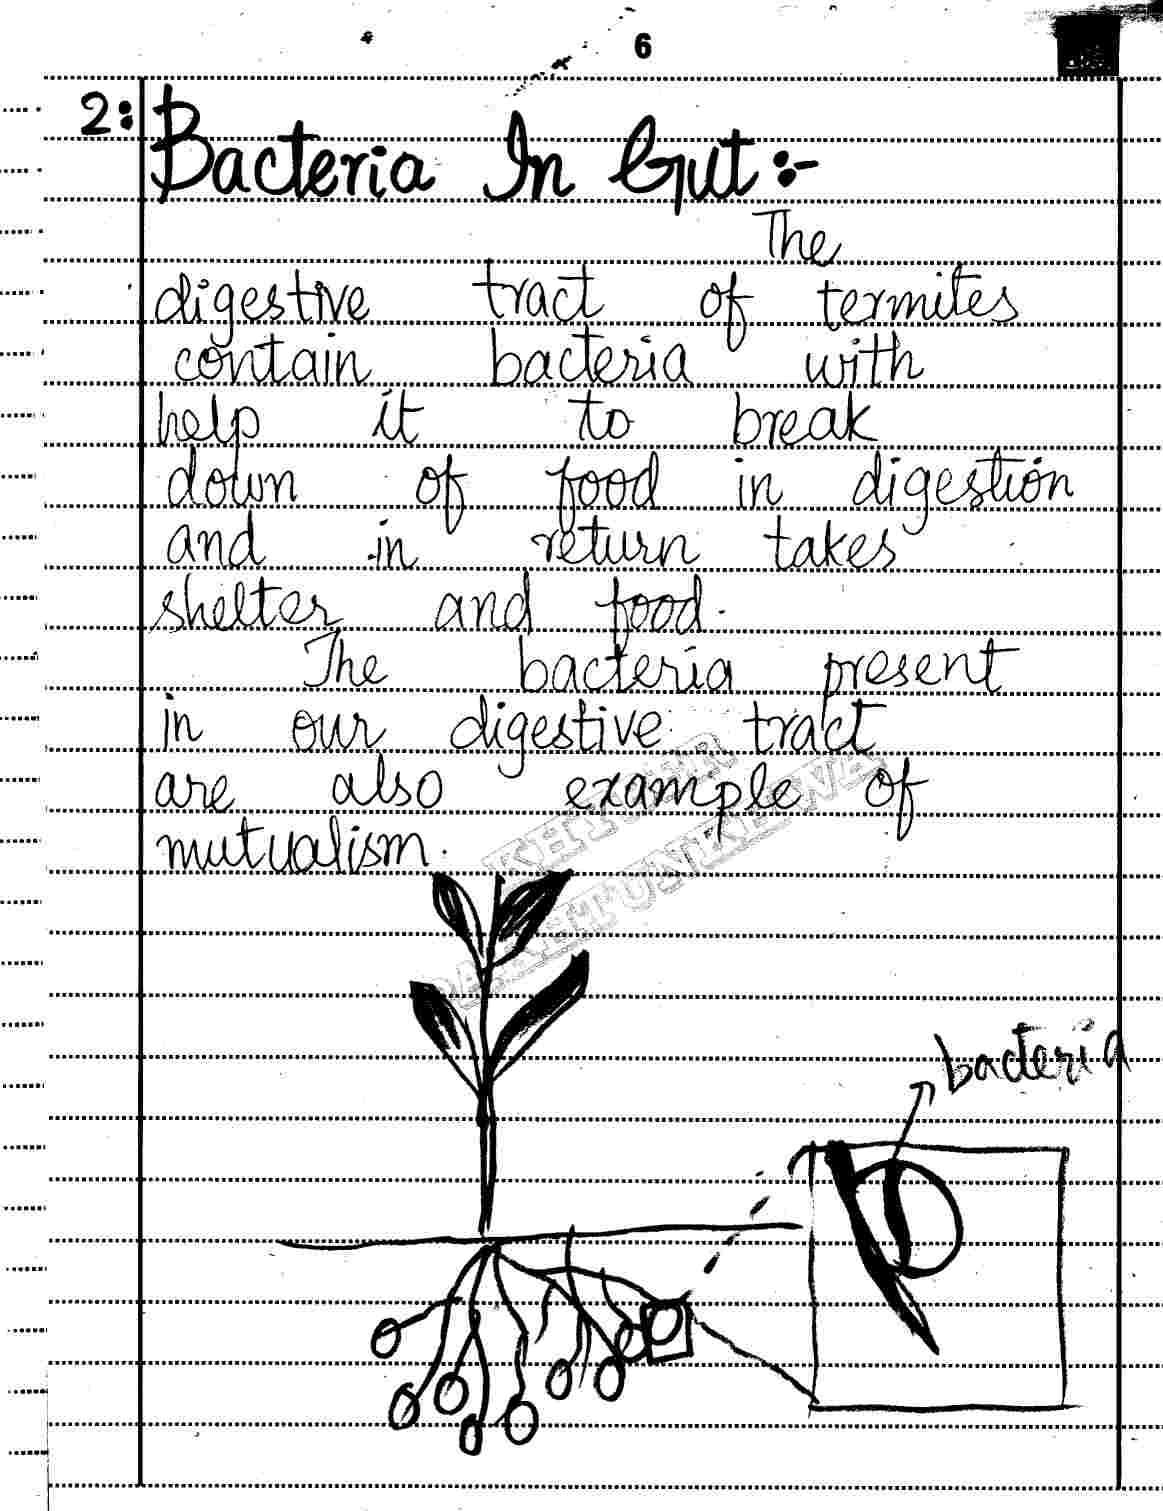 6
2: Bacteria In Gut:-
The
digestive tract of termites
contain bacteria with
help it to break
down of food in digestion
and in return takes
shelter and food.
The bacteria present
in our digestive tract
are also example of
mutualism.
KHYBER
PAKHTUNKHWA
bacteria